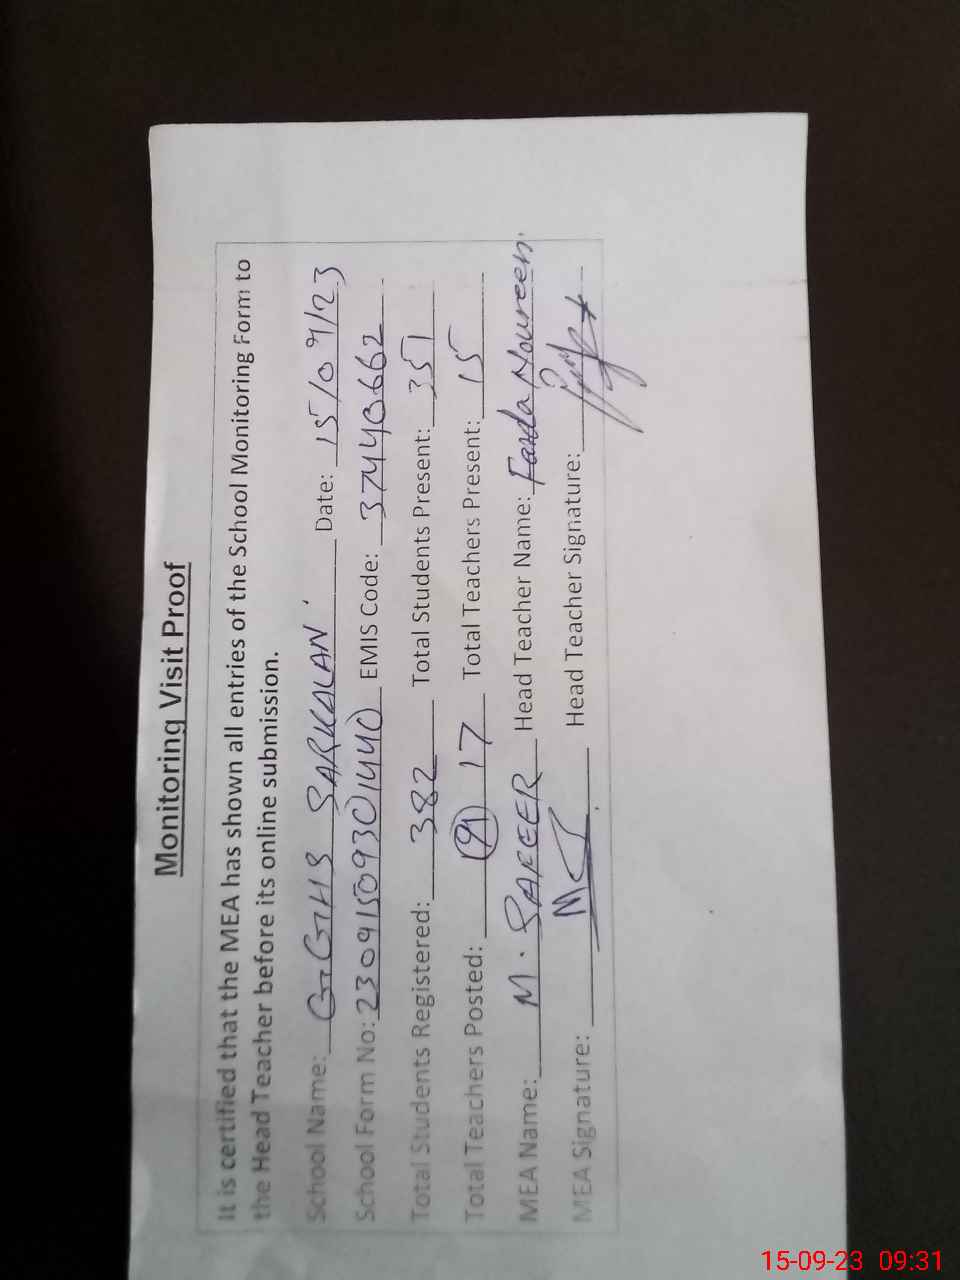 Monitoring Visit Proof
It is certified that the MEA has shown all entries of the School Monitoring Form to
the Head Teacher before its online submission.
School Name: GGHS SARKALAN Date: 15/09/23
School Form No: 23091509301440 EMIS Code: 37440662
Total Students Registered: 382 Total Students Present: 351
Total Teachers Posted: 17 Total Teachers Present: 15
MEA Name: M. SAFEER Head Teacher Name: Farda Noureen.
MEA Signature: Head Teacher Signature:
15-09-23 09:31